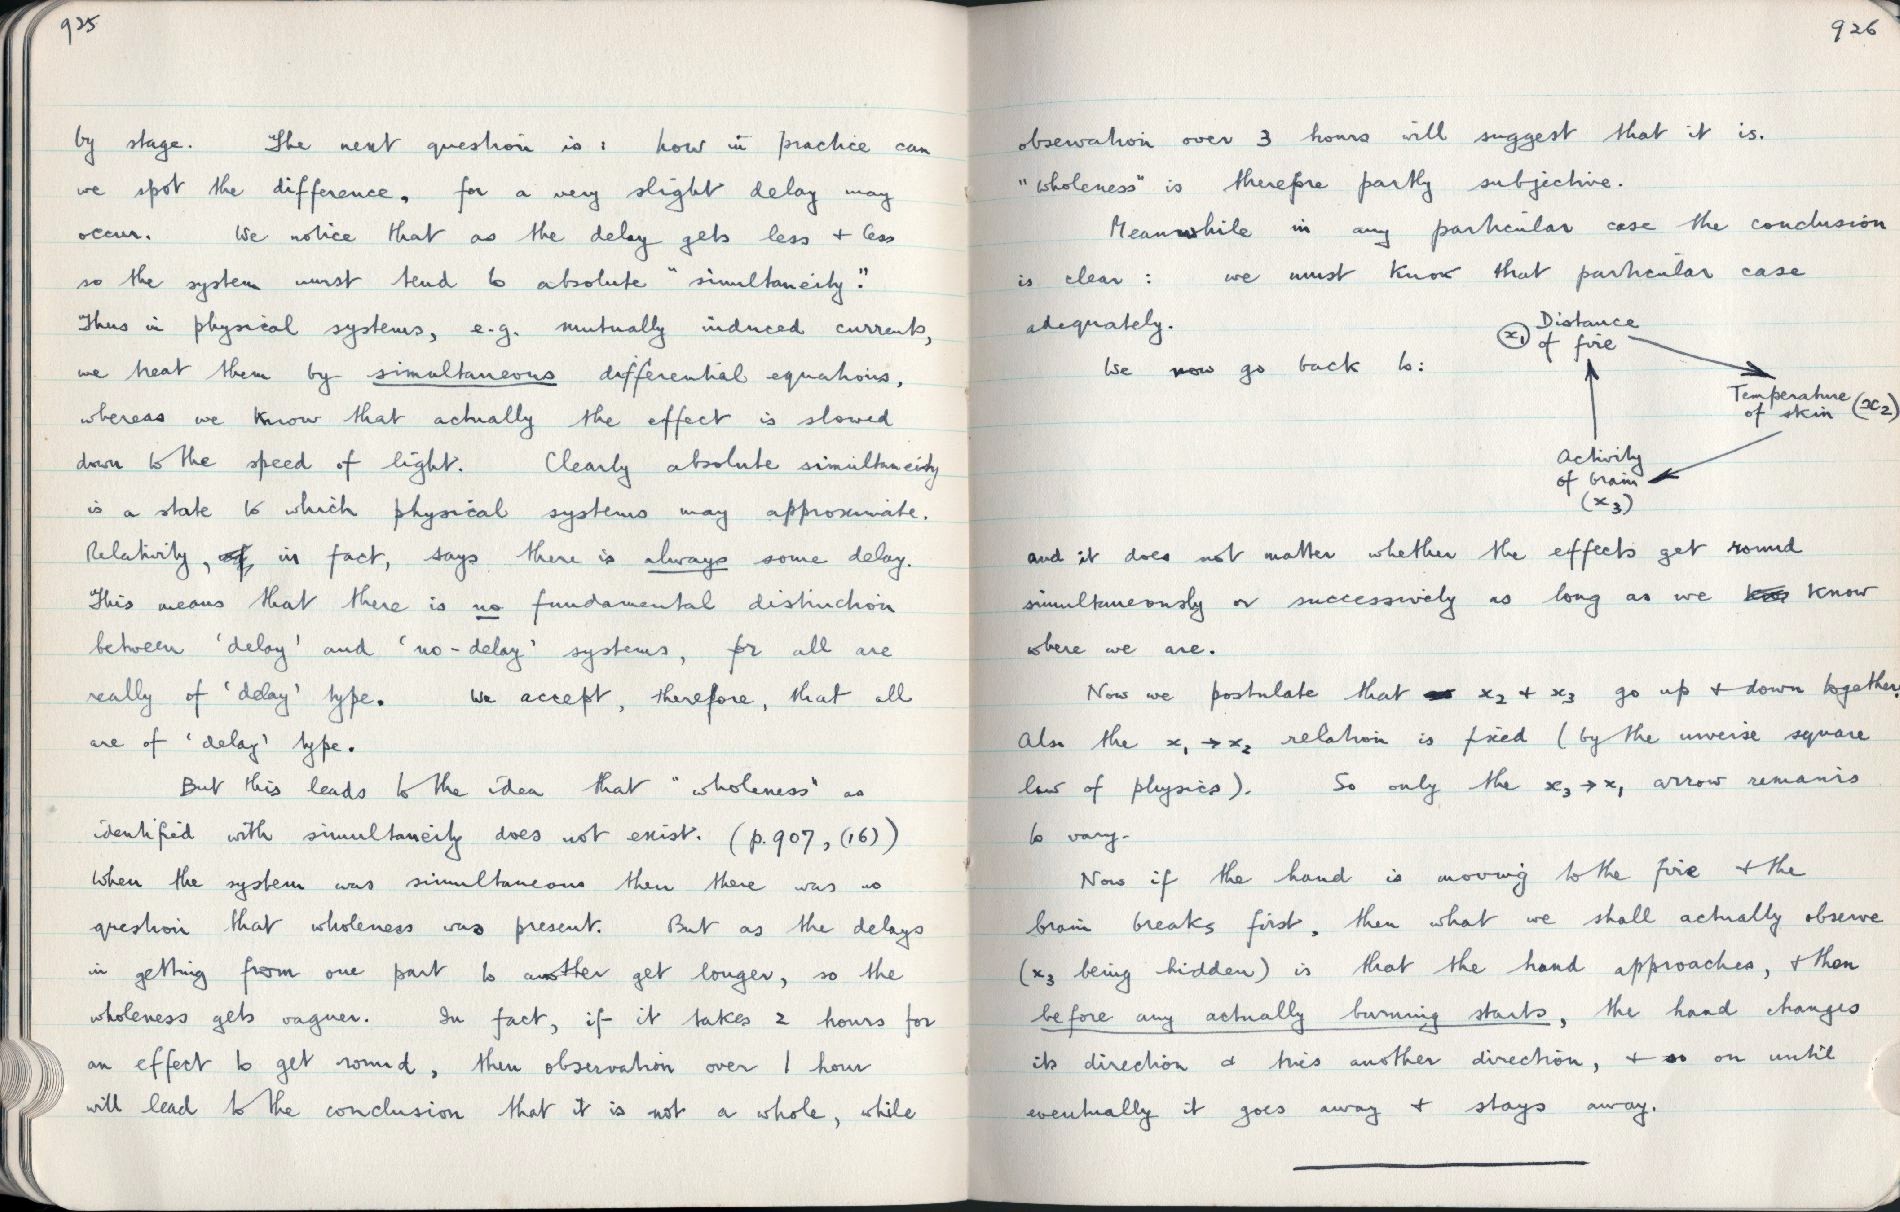 925
by stage. The next question is: how in practice can
we spot the difference, for a very slight delay may
occur. We notice that as the delay gets less + less
so the system must tend to absolute "simultaneity".
Thus in physical systems, e.g. mutually induced currents,
we treat them by simultaneous differential equations,
whereas we know that actually the effect is slowed
down to the speed of light. Clearly absolute simultaneity
is a state to which physical systems may approximate.
Relativity, in fact, says there is always some delay.
This means that there is no fundamental distinction
between 'delay' and 'no-delay' systems, for all are
really of 'delay' type. We accept, therefore, that all
are of 'delay' type.
But this leads to the idea that "wholeness" as
identified with simultaneity does not exist. (p.907, (16))
When the system was simultaneous then there was no
question that wholeness was present. But as the delays
in getting from one part to another get longer, so the
wholeness gets vaguer. In fact, if it takes 2 hours for
an effect to get round, then observation over 1 hour
will lead to the conclusion that it is not a whole, while
926
observation over 3 hours will suggest that it is.
"Wholeness" is therefore partly subjective.
Meanwhile in any particular case the conclusion
is clear: we must know that particular case
adequately.
We now go back to:
(x1) Distance
of fire
Temperature
of skin (x2)
Activity
of brain
(x3)
and it does not matter whether the effects get round
simultaneously or successively as long as we know
where we are.
Now we postulate that x2 + x3 go up + down together.
Also the x1 → x2 relation is fixed (by the inverse square
law of physics). So only the x3 → x1 arrow remains
to vary.
Now if the hand is moving to the fire + the
brain breaks first, then what we shall actually observe
(x3 being hidden) is that the hand approaches, + then
before any actually burning starts, the hand changes
its direction + tries another direction, + so on until
eventually it goes away + stays away.